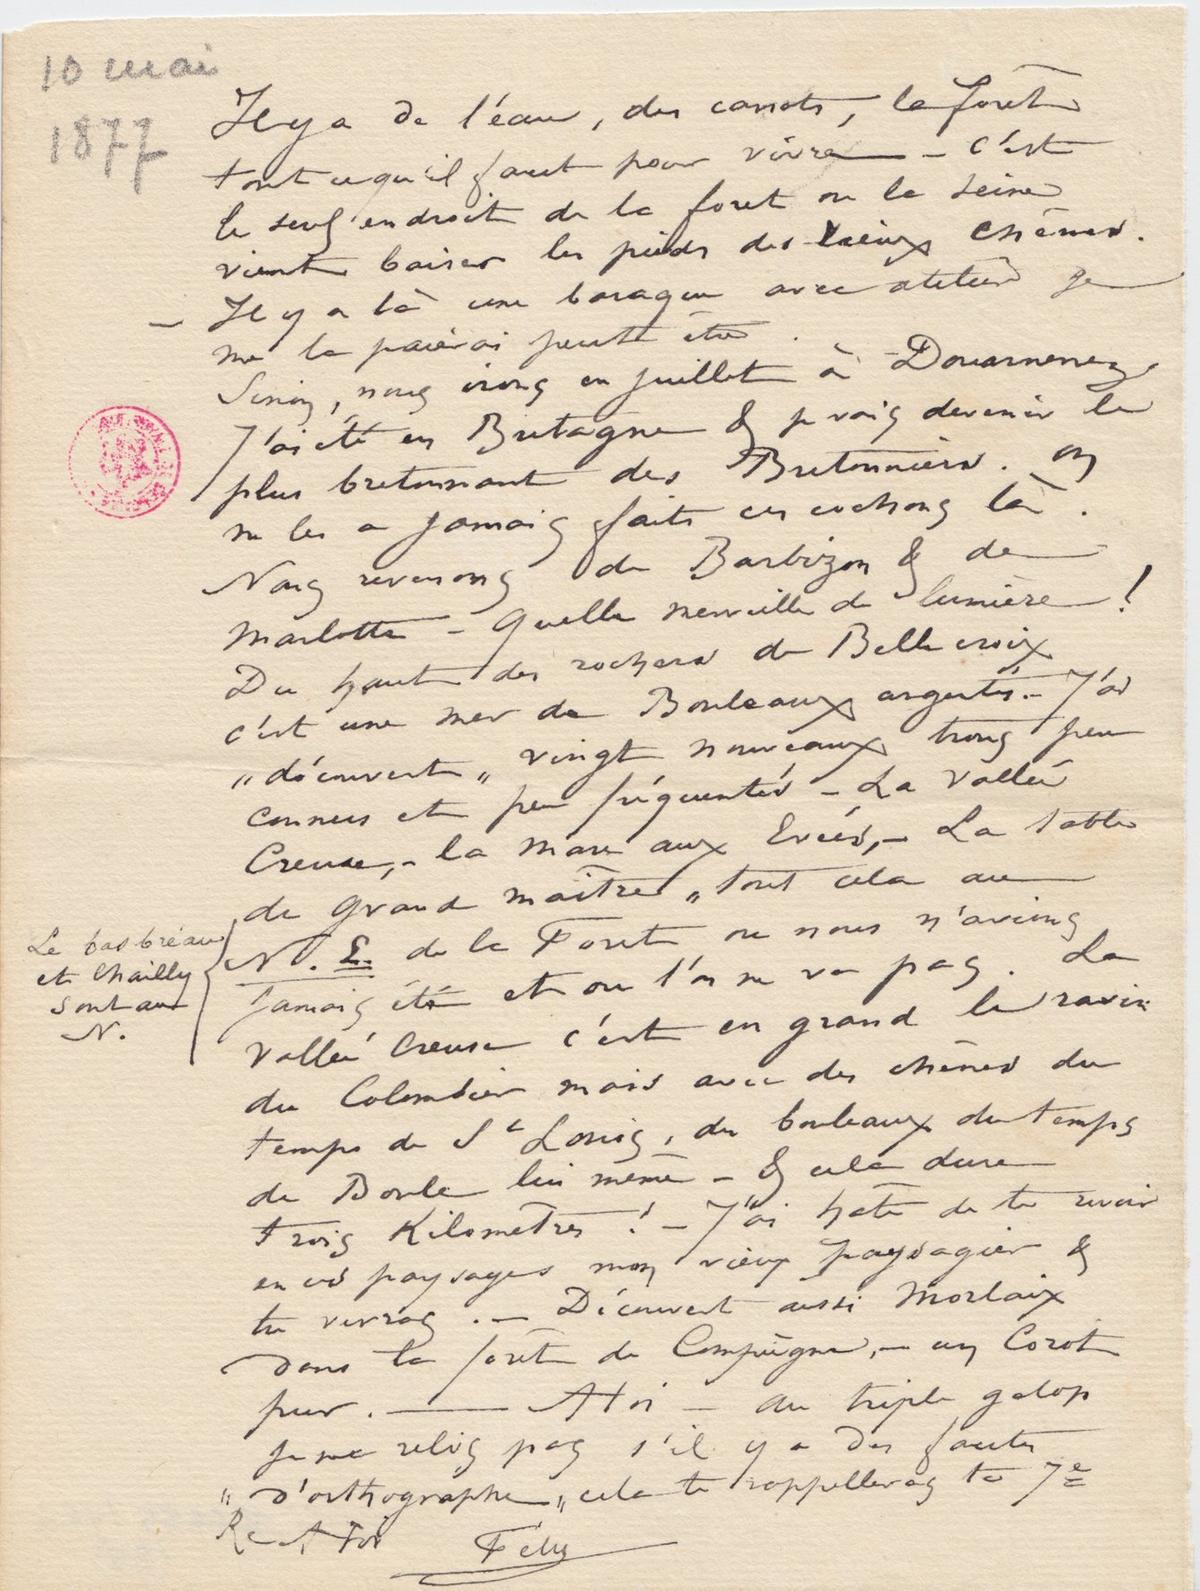 10 mai
1877
Il y a de l'eau, des canots, la forêt
tout ce qu'il faut pour vivre — c'est
le seul endroit de la foret ou la Seine
vient baiser les pieds des vieux chênes.
— Il y a là une baraque avec atelier je
me la paierai peut être.
Sinon, nous irons en juillet à Douarnenez
J'ai été en Bretagne & je vais devenir le
plus bretonnant des Bretonniers. on
ne les a jamais faits ces cochons là.
Nous revenons de Barbizon & de
Marlotte — Quelle merveille de lumière !
Du haut des rochers de Belle croix
c'est une mer de Bouleaux argentés. — J'ai
"découvert" vingt nouveaux trous peu
connus et peu fréquentés — La Vallée
Creuse, — la Mare aux Evées, — La table
du Grand maître, tout cela au
N. E. de la Foret ou nous n'avions
jamais été et ou l'on ne va pas. La
Vallée Creuse c'est en grand le ravin
du Colombier mais avec des chênes du
temps de St Louis, des bouleaux du temps
de Boule lui même — & cela dure
trois Kilomètres ! — J'ai hate de te revoir
en ces paysages mon vieux paysagier &
tu verras. — Découvert aussi Morlaix
dans la forêt de Compiègne, — un Corot
pur. — A toi — au triple galop
Je ne relis pas s'il y a des fautes
"d'orthographe" cela te rappelleras ta 7e
Re A toi Fély
Le bas bréau
et Chailly
sont au
N.